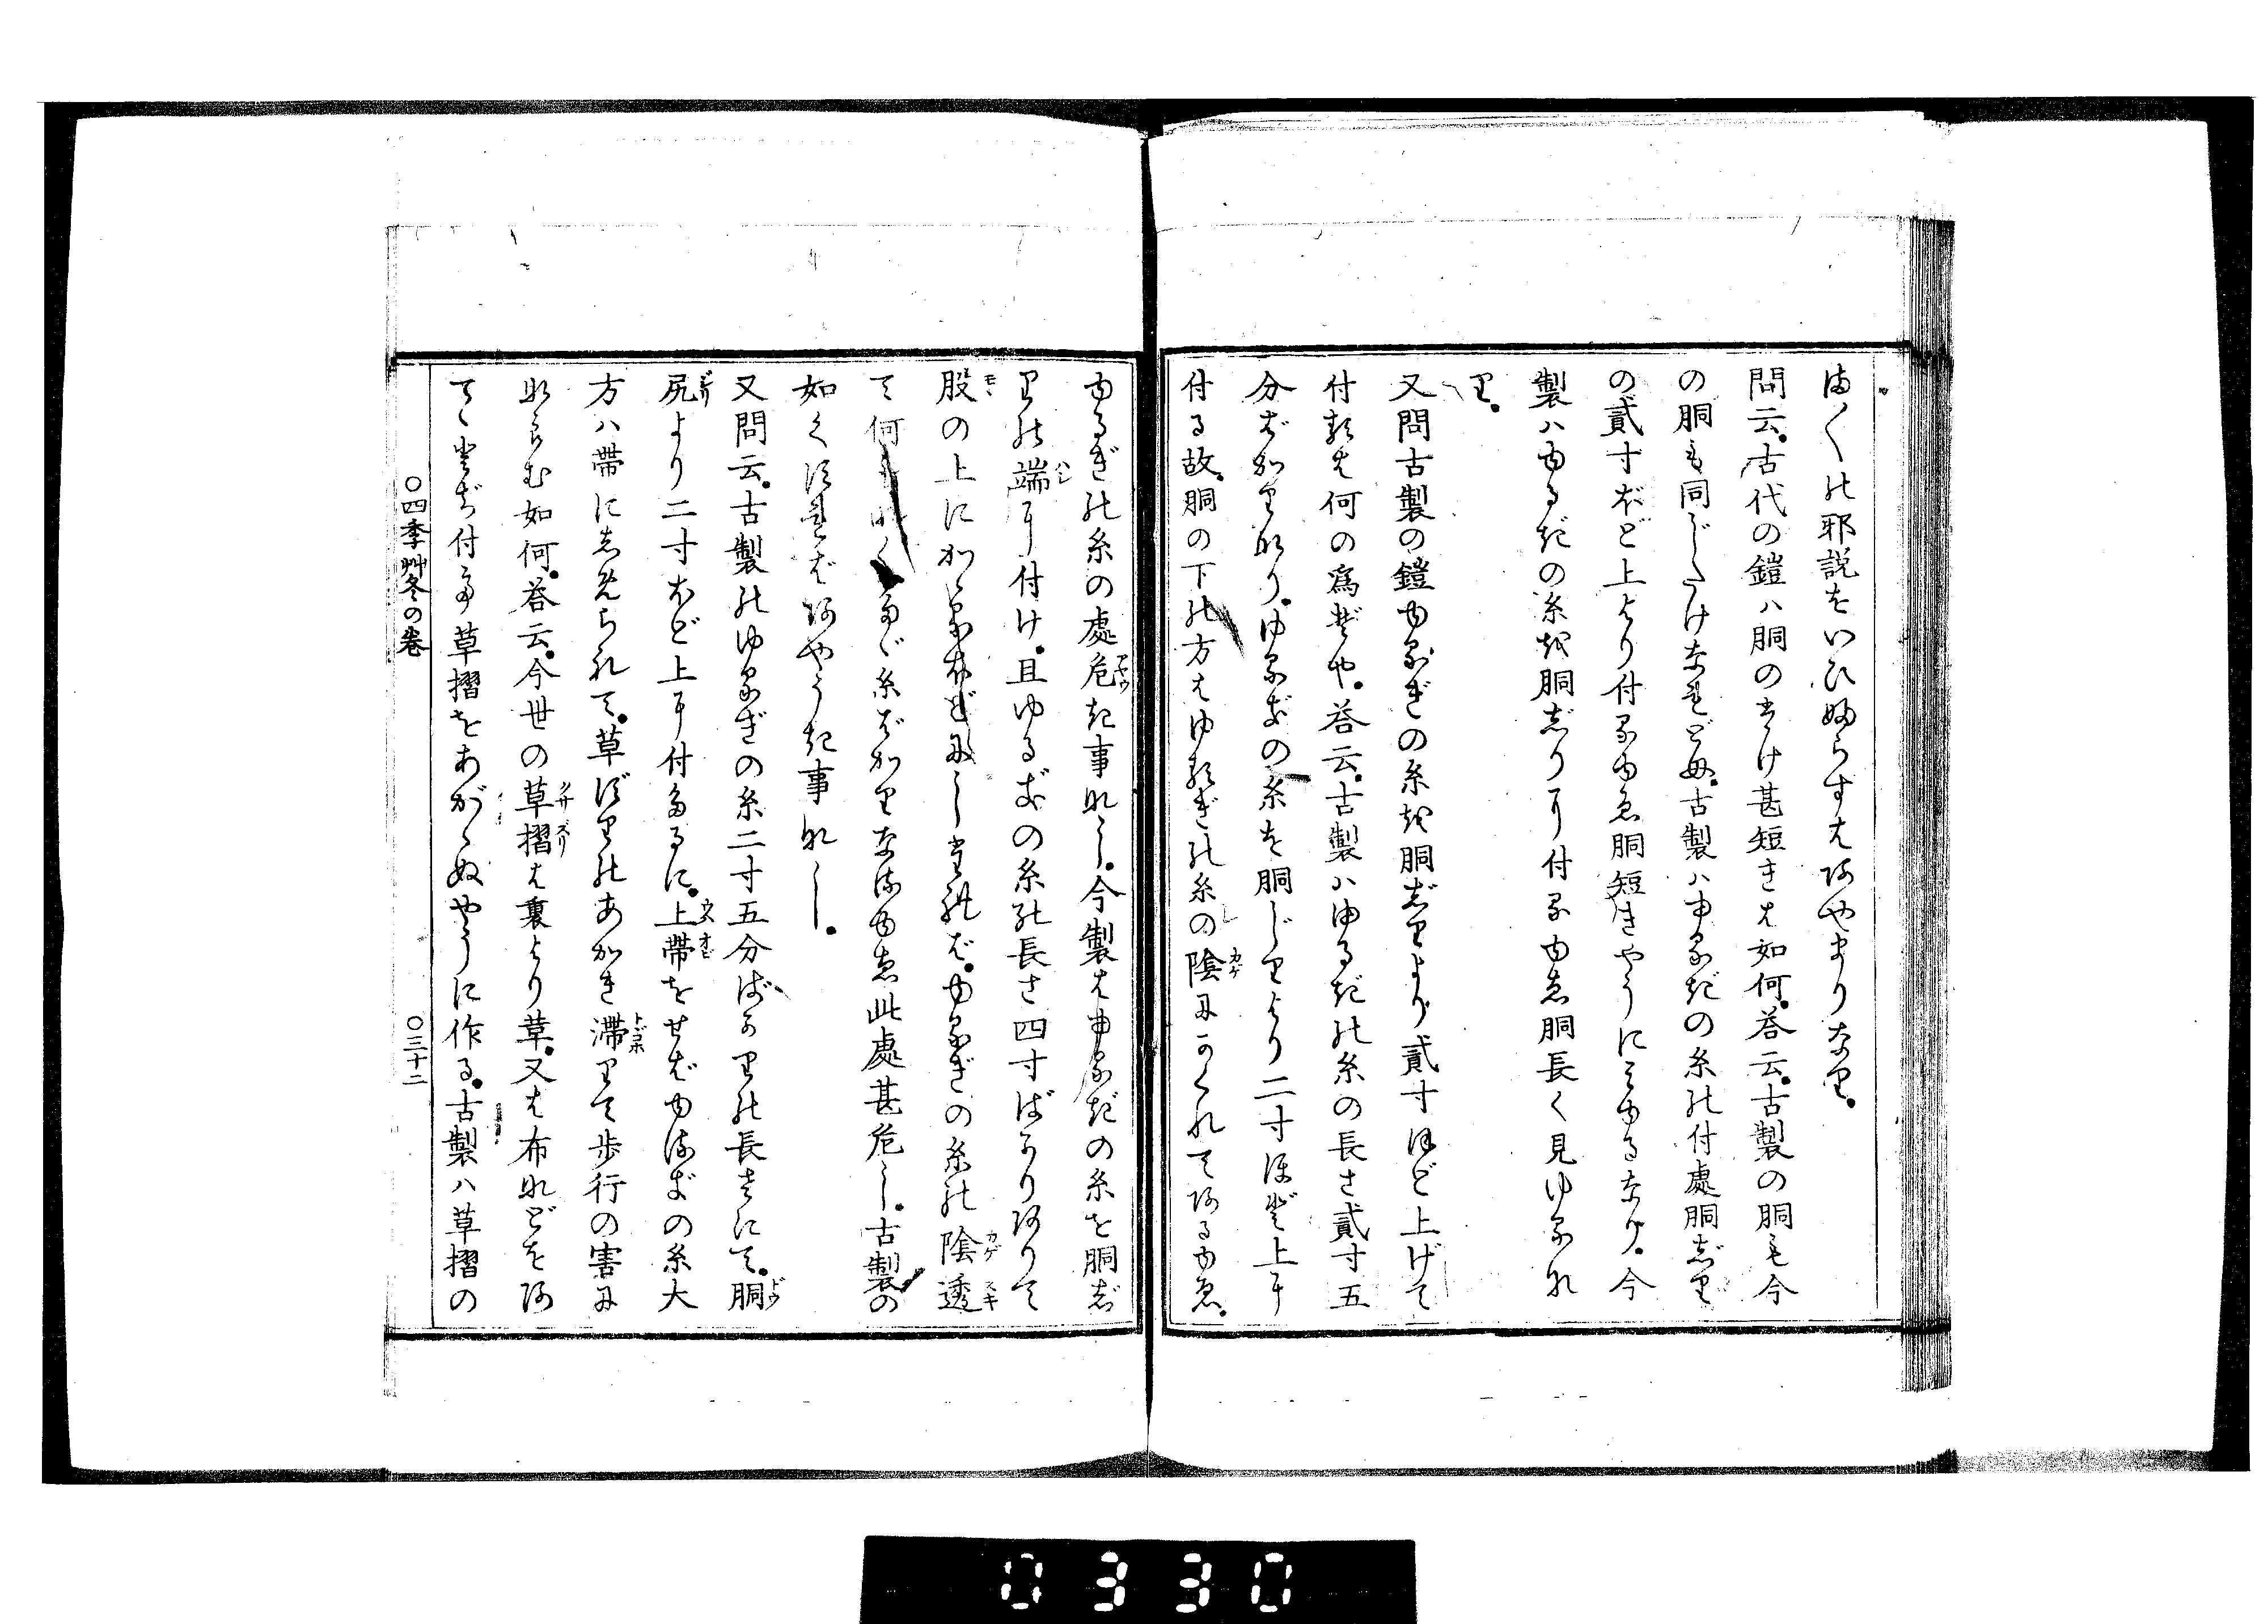 まく〳〵の邪説をいひふらすはあやまりなり。
問云。古代の鎧ハ胴のたけ甚短きは如何。荅云。古製の胴も今
の胴も同じたけなれども。古製ハゆるぎの糸の付處胴じり
の貳寸ほど上より付るゆゑ胴短きやうに見ゆるなり。今
製ハゆるぎの糸を胴じりに付るゆゑ胴長く見ゆるな
り。
又問古製の鎧ゆるぎの糸を胴じりより貳寸ほど上げて
付るは何の爲ぞや。荅云。古製ハゆるぎの糸の長さ貳寸五
分ばかりなり。ゆるぎの糸を胴じりより二寸ほど上に
付る故。胴の下の方はゆるぎの糸の陰にかくれてあるゆゑ。
ゆるぎの糸の處危き事なし。今製はゆるぎの糸を胴じ
りの端に付け。且ゆるぎの糸の長さ四寸ばかりありて
股の上にかゝるほどにしたれば。ゆるぎの糸の陰透
て何もなくたゞ糸ばかりなるゆゑ此處甚危し。古製の
如くすればあやうき事なし。
又問云。古製のゆるぎの糸二寸五分ばかりの長さにて。胴
尻より二寸ほど上に付たるに。上帯をせばゆるぎの糸大
方ハ帶にしめられて。草ずりのあがき滯りて歩行の害に
ならむ如何。荅云。今世の草摺は裏より革。又は布などをあ
てゝとぢ付て草摺をあがゝぬやうに作る。古製ハ草摺の
〇四季艸冬の巻　〇三十二
0330